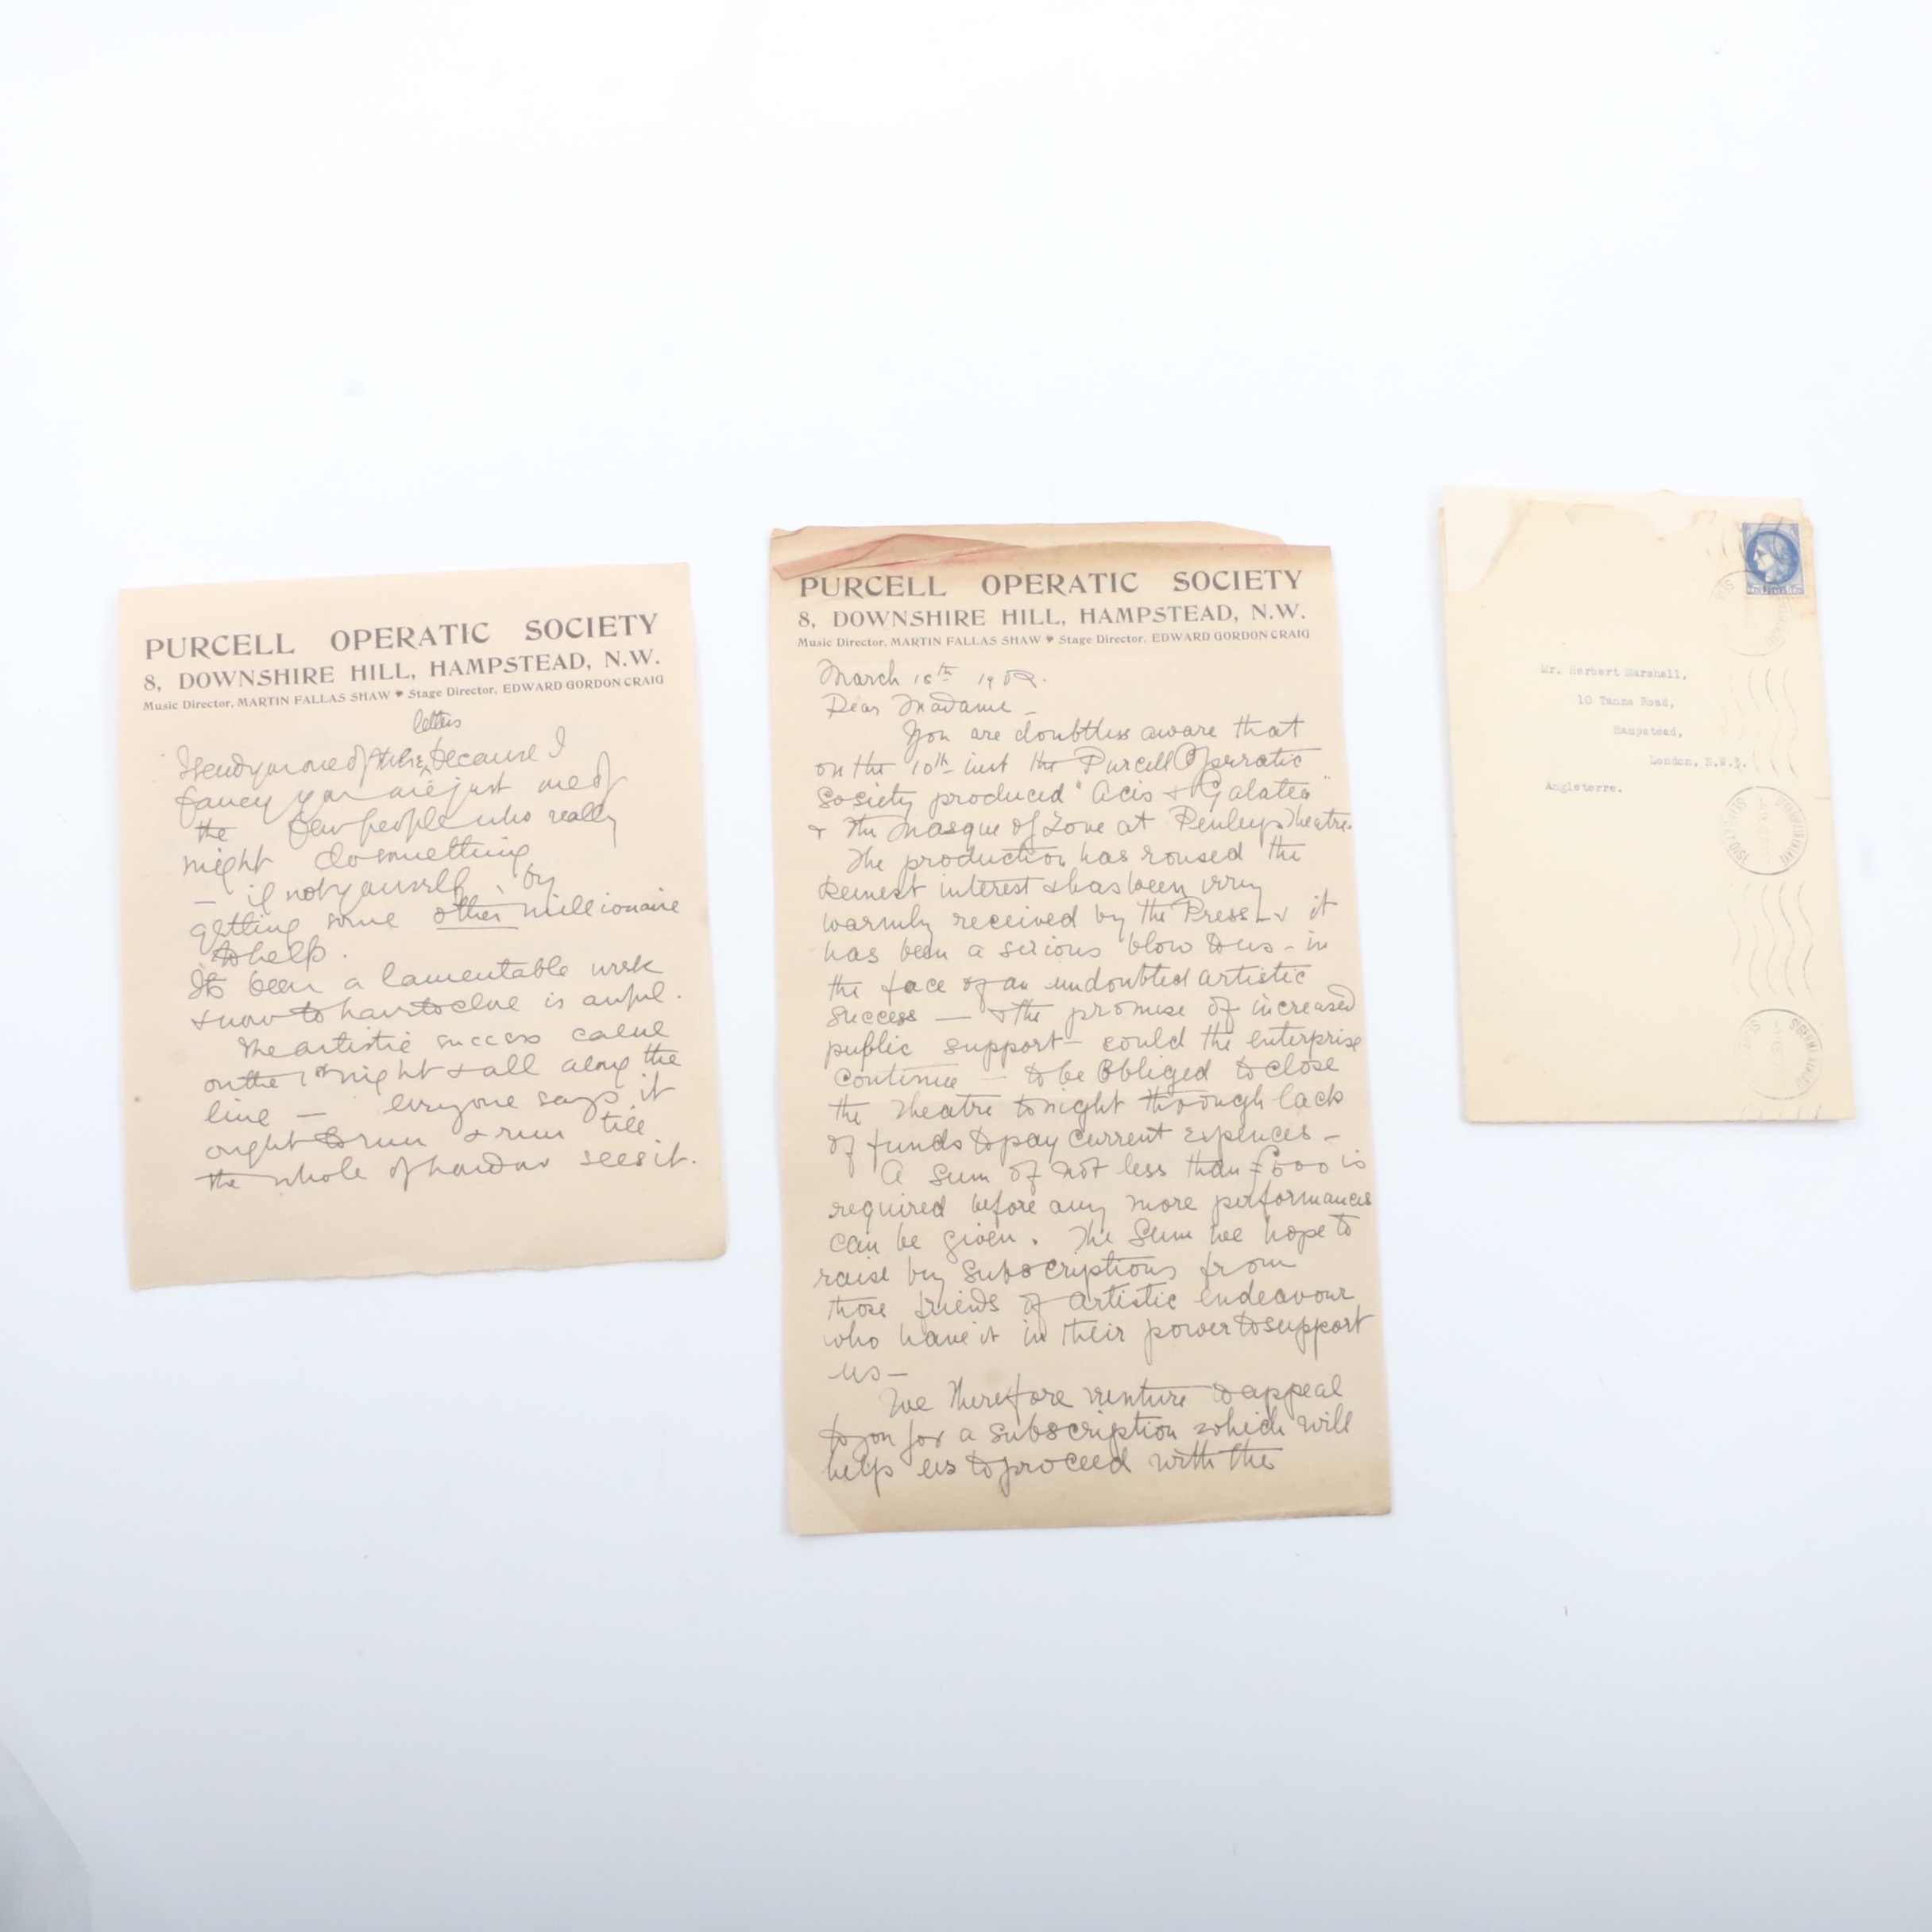 PURCELL OPERATIC SOCIETY
8, DOWNSHIRE HILL, HAMPSTEAD, N.W.
Music Director, MARTIN FALLAS SHAW Stage Director, EDWARD GORDON CRAIG
letters
I send you one of these because I
fancy you are just one of
the few people who really
might do something
— if not yourself, by
getting some other millionaire
to help.
Its been a lamentable week
& now to have to close is awful.
The artistic success came
on the 1st night & all along the
line — everyone says it
ought to run & run till
the whole of London sees it.
PURCELL OPERATIC SOCIETY
8, DOWNSHIRE HILL, HAMPSTEAD, N.W.
Music Director, MARTIN FALLAS SHAW Stage Director, EDWARD GORDON CRAIG
March 15th 1902.
Dear Madame —
You are doubtless aware that
on the 10th inst the Purcell Operatic
Society produced "Acis & Galatea"
& The Masque of Love at Penleys Theatre.
The production has roused the
keenest interest & has been very
warmly received by the Press — & it
has been a serious blow to us — in
the face of an undoubted artistic
success — & the promise of increased
public support — could the enterprise
continue — to be obliged to close
the Theatre tonight through lack
of funds to pay current expences —
A sum of not less than £600 is
required before any more performances
can be given. The Sum we hope to
raise by subscriptions from
those friends of artistic endeavour
who have it in their power to support
us —
We therefore venture to appeal
to you for a subscription which will
help us to proceed with the
Mr. Herbert Marshall,
10 Tanza Road,
Hampstead,
London, N.W.3.
Angleterre.